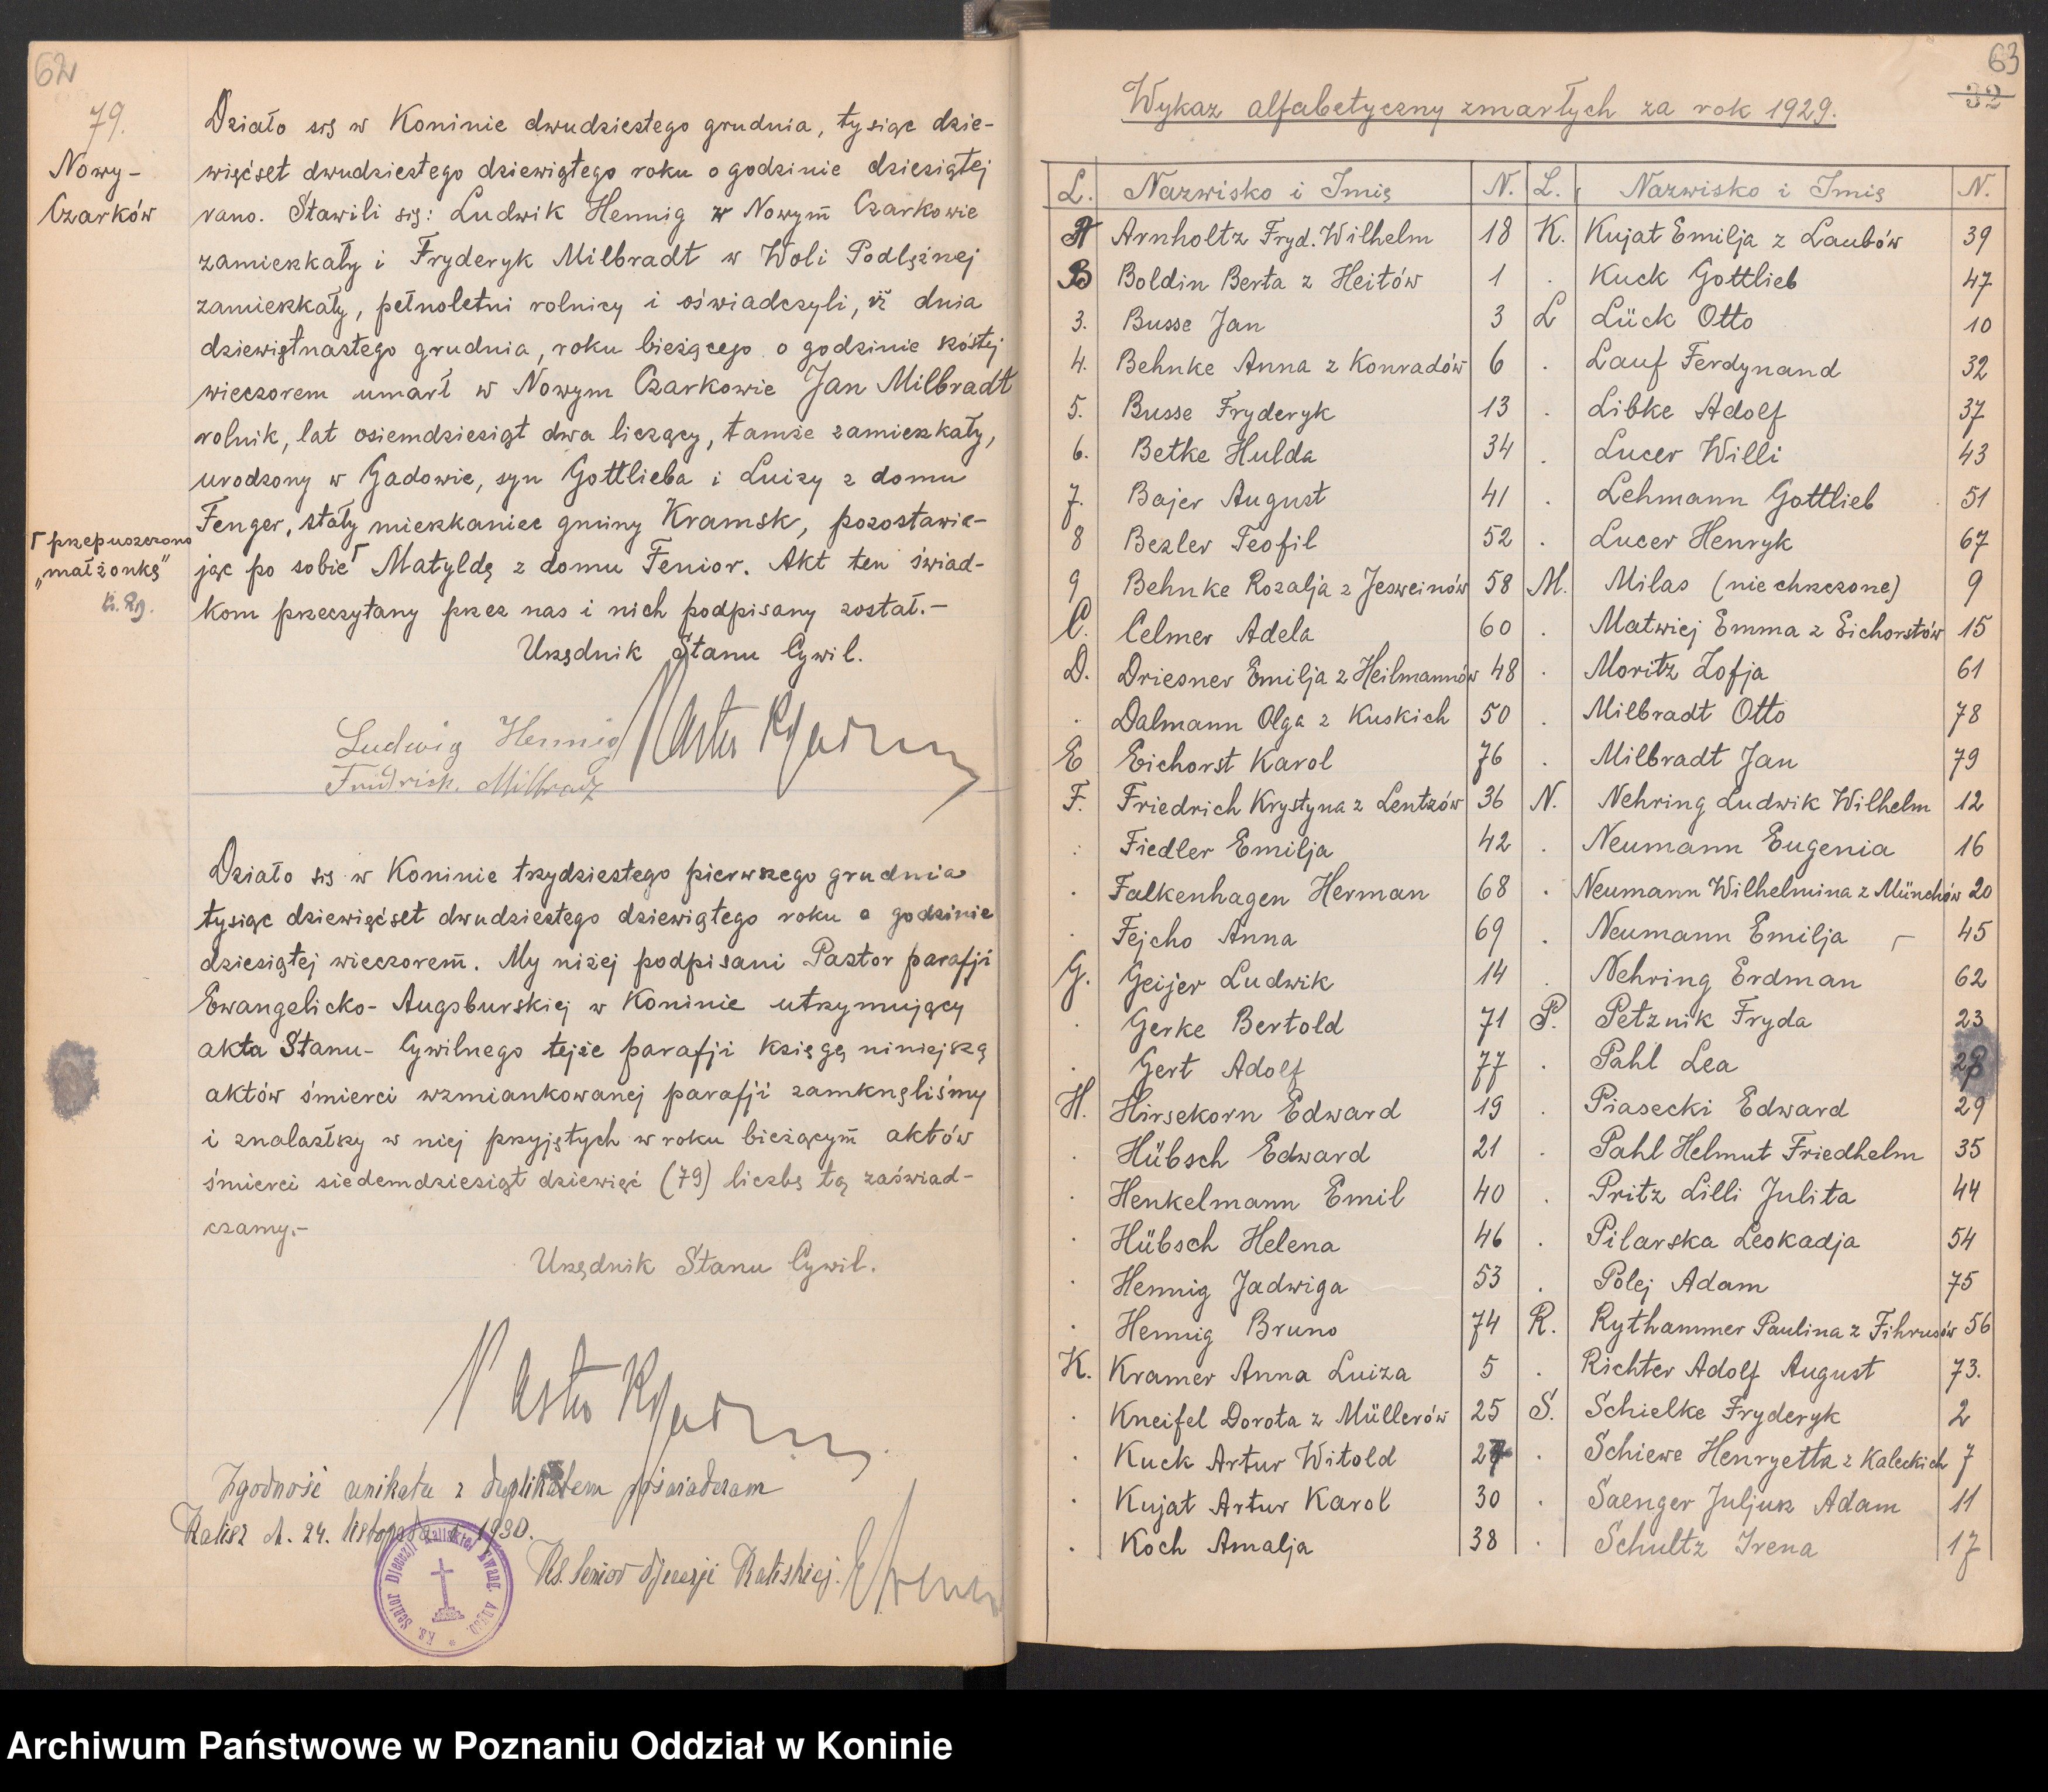 62
79.
Nowy-
Czarków
Działo się w Koninie dwudziestego grudnia, tysiąc dzie-
więćset dwudziestego dziewiątego roku o godzinie dziesiątej
rano. Stawili się: Ludwik Hennig w Nowym Czarkowie
zamieszkały i Fryderyk Milbradt w Woli Podlężnej
zamieszkały, pełnoletni rolnicy i oświadczyli, iż dnia
dziewiętnastego grudnia, roku bieżącego o godzinie szóstej
wieczorem umarł w Nowym Czarkowie Jan Milbradt
rolnik, lat osiemdziesiąt dwa liczący, tamże zamieszkały,
urodzony w Gadowie, syn Gottlieba i Luizy z domu
Fenger, stały mieszkaniec gminy Kramsk, pozostawia-
jąc po sobie Γ Matyldę z domu Fenior. Akt ten świad-
kom przeczytany przez nas i nich podpisany został.-
Γ przepuszczono
"małżonkę"
Urzędnik Stanu Cywil.
Ludwig Hennig
Pastor
Działo się w Koninie trzydziestego pierwszego grudnia
tysiąc dziewięćset dwudziestego dziewiątego roku o godzinie
dziesiątej wieczorem. My niżej podpisani Pastor parafji
Ewangelicko-Augsburskiej w Koninie utrzymujący
akta Stanu-Cywilnego tejże parafji księgę niniejszą
aktów śmierci wzmiankowanej parafji zamknęliśmy
i znalazłszy w niej przyjętych w roku bieżącym aktów
śmierci siedemdziesiąt dziewięć (79) liczbę tą zaświad-
czamy.-
Urzędnik Stanu Cywil.
Pastor
Zgodność unikatu z duplikatem poświadczam
Kalisz d. 24. listopada 1930.
Ks. Senior Djecezji Kaliskiej.
Ks. Senior Djecezji Kaliskiej Ewang. Augsb.
63
32
Wykaz alfabetyczny zmarłych za rok 1929.
L. Nazwisko i Imię N. L. Nazwisko i Imię N.
A Arnholtz Fryd. Wilhelm 18 K. Kujat Emilja z Laubów 39
B Boldin Berta z Heitów 1 . Kuck Gottlieb 47
3. Busse Jan 3 L Lück Otto 10
4. Behnke Anna z Konradów 6 . Lauf Ferdynand 32
5. Busse Fryderyk 13 . Libke Adolf 37
6. Betke Hulda 34 . Lucer Willi 43
7. Bajer August 41 . Lehmann Gottlieb 51
8 Bezler Teofil 52 . Lucer Henryk 67
9 Behnke Rozalja z Jesweinów 58 M. Milas (nie chrzczone) 9
C. Celmer Adela 60 . Matwiej Emma z Eichorstów 15
D. Driesner Emilja z Heilmannów 48 . Moritz Zofja 61
. Dalmann Olga z Kuskich 50 . Milbradt Otto 78
E Eichorst Karol 76 . Milbradt Jan 79
F. Friedrich Krystyna z Lentzów 36 N. Nehring Ludwik Wilhelm 12
. Fiedler Emilja 42 . Neumann Eugenia 16
. Falkenhagen Herman 68 . Neumann Wilhelmina z Münchów 20
. Fejcho Anna 69 . Neumann Emilja 45
G. Geijer Ludwik 14 . Nehring Erdman 62
. Gerke Bertold 71 P. Petznik Fryda 23
. Gert Adolf 77 . Pahl Lea 28
H. Hirsekorn Edward 19 . Piasecki Edward 29
. Hübsch Edward 21 . Pahl Helmut Friedhelm 35
. Henkelmann Emil 40 . Pritz Lilli Julita 44
. Hübsch Helena 46 . Pilarska Leokadja 54
. Hennig Jadwiga 53 . Polej Adam 75
. Hennig Bruno 74 R. Rythammer Paulina z Fihrusów 56
K. Kramer Anna Luiza 5 . Richter Adolf August 73.
. Kneifel Dorota z Müllerów 25 S. Schielke Fryderyk 2
. Kuck Artur Witold 27 . Schiewe Henryetta z Kaleckich 7
. Kujat Artur Karol 30 . Saenger Juljusz Adam 11
. Koch Amalja 38 . Schultz Irena 17
Archiwum Państwowe w Poznaniu Oddział w Koninie